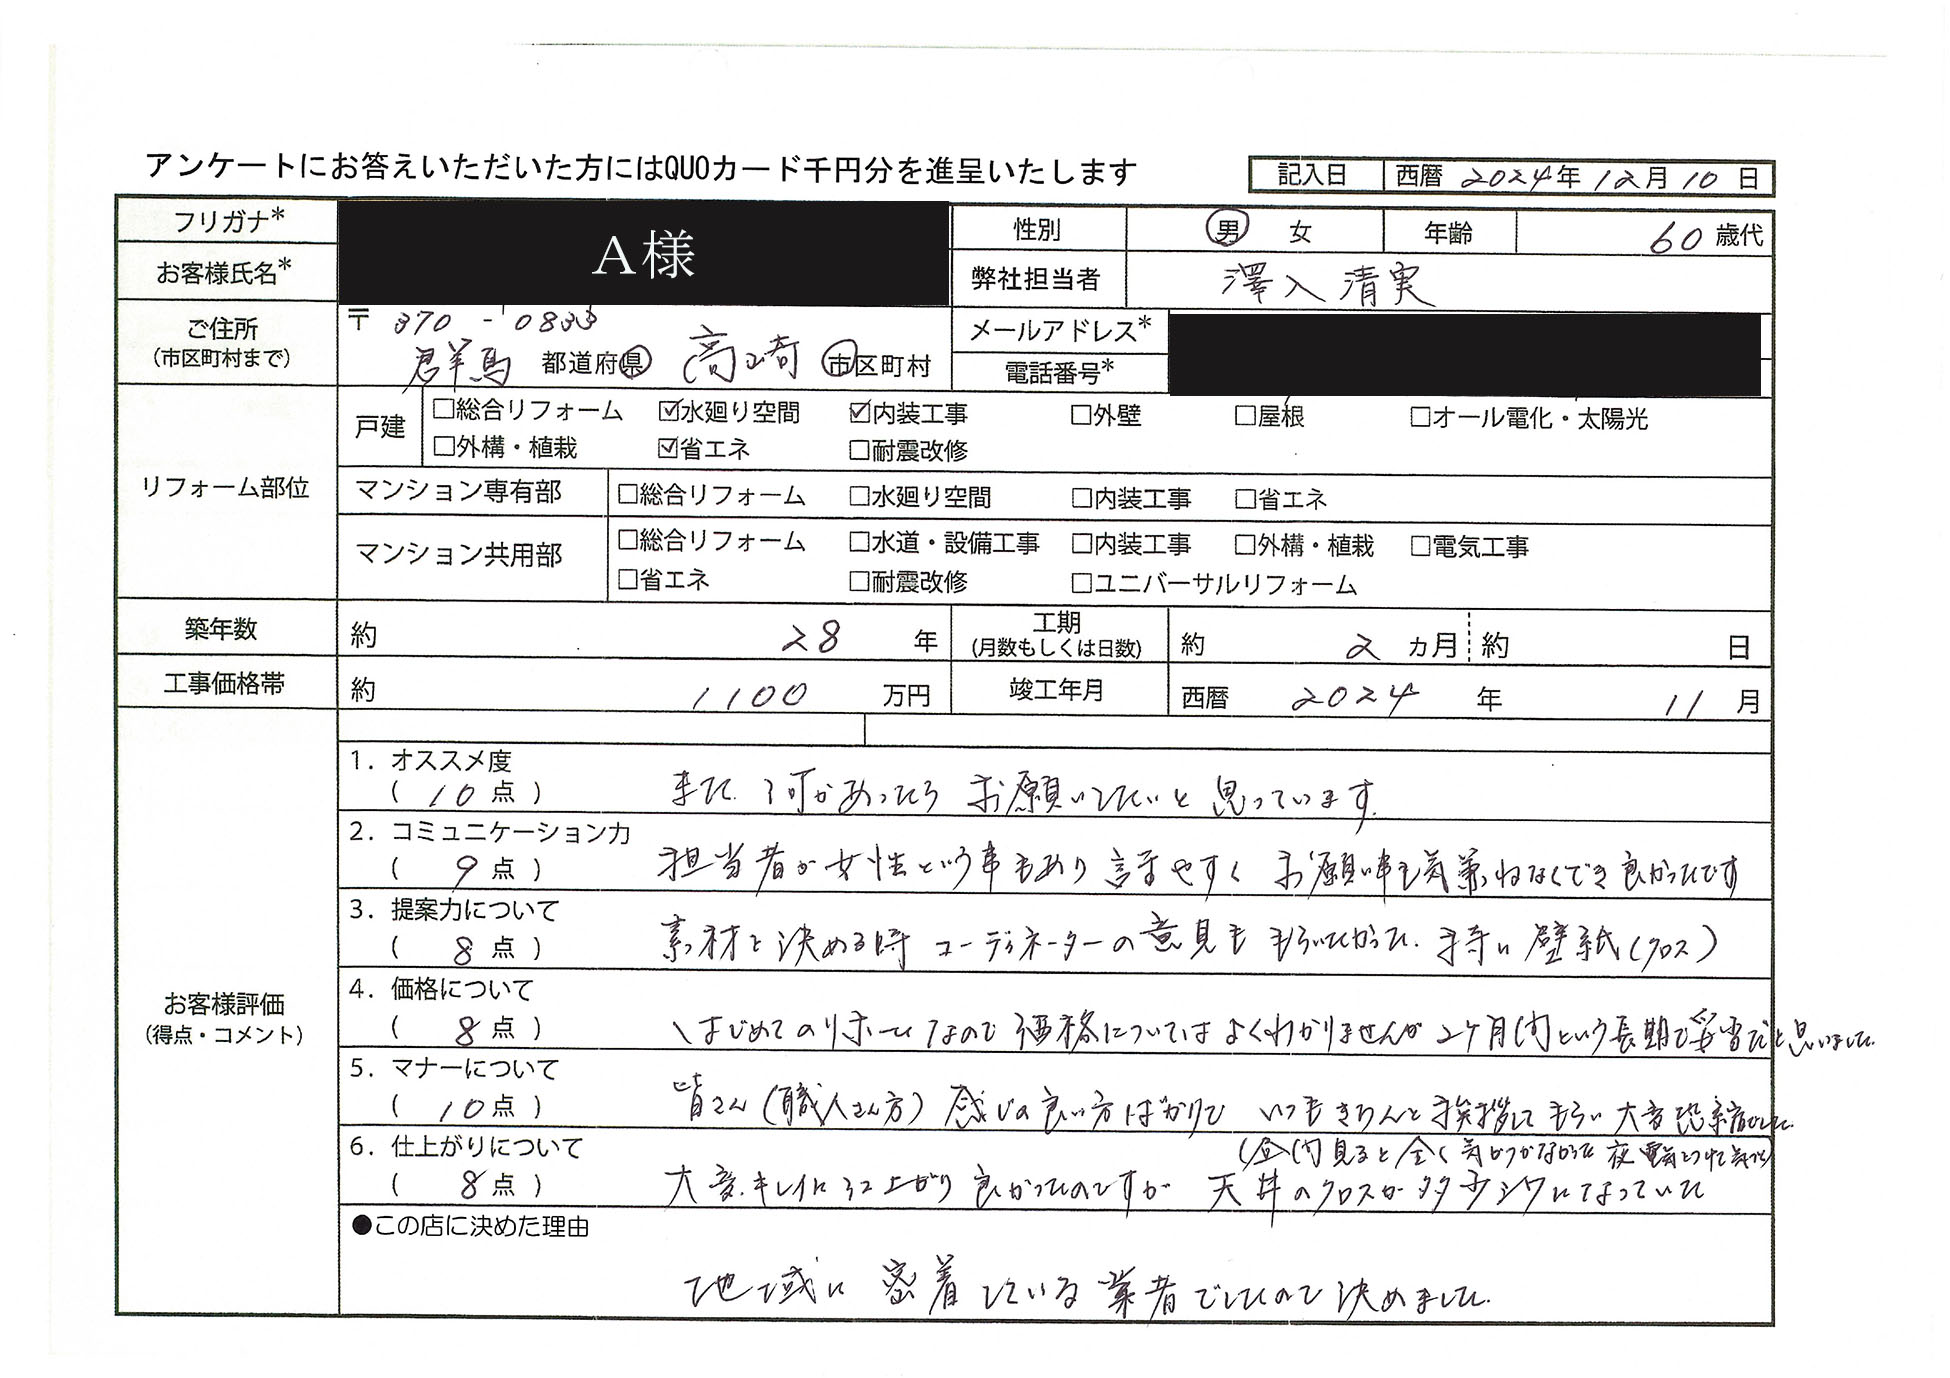 アンケートにお答えいただいた方にはQUOカード千円分を進呈いたします
記入日 西暦 2024年 12月 10日
フリガナ* A様 性別 男 女 年齢 60歳代
お客様氏名* 弊社担当者 澤入清実
ご住所 (市区町村まで) 〒370-0833
群馬 都道府県 高崎 市区町村
メールアドレス*
電話番号*
リフォーム部位
戸建 □総合リフォーム ☑水廻り空間 ☑内装工事 □外壁 □屋根 □オール電化・太陽光
□外構・植栽 ☑省エネ □耐震改修
マンション専有部 □総合リフォーム □水廻り空間 □内装工事 □省エネ
マンション共用部 □総合リフォーム □水道・設備工事 □内装工事 □外構・植栽 □電気工事
□省エネ □耐震改修 □ユニバーサルリフォーム
築年数 約 28 年 工期 (月数もしくは日数) 約 2 ヵ月 約 日
工事価格帯 約 1100 万円 竣工年月 西暦 2024 年 11 月
お客様評価
(得点・コメント)
1. オススメ度
( 10点 ) また、何かあったらお願いしたいと思っています。
2. コミュニケーション力
( 9点 ) 担当者が女性という事もあり話やすくお願い事も気兼ねなくでき良かったです
3. 提案力について
( 8点 ) 素材を決める時コーディネーターの意見ももらいたかった、特に壁紙(クロス)
4. 価格について
( 8点 ) はじめてのリホームなので価格についてはよくわかりませんが2ヶ月間という長期で妥当だと思いました。
5. マナーについて
( 10点 ) 皆さん(職人さん方)感じの良い方ばかりで いつもきちんと挨拶してもらい大変恐縮でした。
6. 仕上がりについて
(昼間見ると全く気がつかなかったが夜電気をつけて気づく)
( 8点 ) 大変キレイに仕上がり良かったのですが 天井のクロスが多少シワになっていた
●この店に決めた理由
地域に密着している業者でしたので決めました。